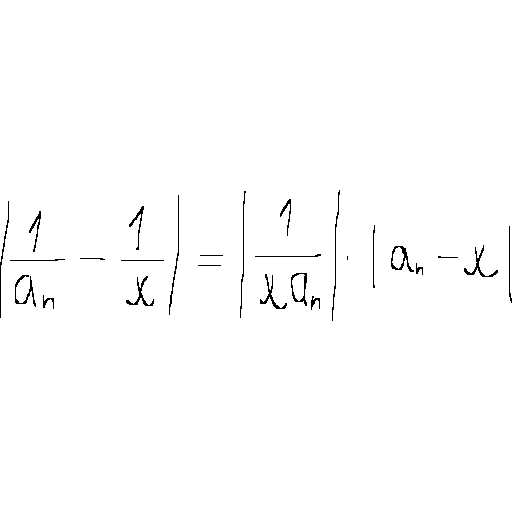 \left| \frac{1}{a_n} - \frac{1}{x} \right| = \left| \frac{1}{x a_n} \right| \cdot | a_n - x |